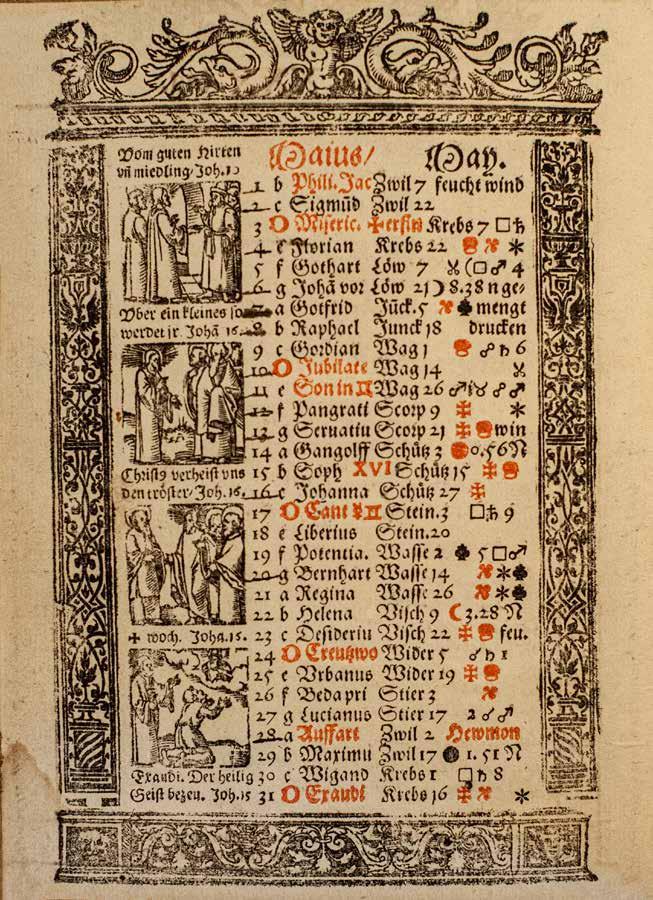 Vom guten Hirten
vñ miedling/Joh.10
Maius/ May.
1 b Phili. Jac Zwil 7 feucht wind
2 c Sigmũd Zwil 22
3 Miseric. erfin Krebs 7 □♄
4 e Florian Krebs 22 *
5 f Gothart Löw 7 □♂ 4
6 g Johã vor Löw 21 ☽ 8.38 n ge-
Vber ein kleines so
werdet jr. Johã 16.
7 a Gotfrid Jũck.5 mengt
8 b Raphael Junck 18 drucken
9 c Gordian Wag 1 ☍ ♄ 6
10 Jubilate Wag 14
11 e Son in ♊ Wag 26
12 f Pangrati Scorp 9 *
13 g Seruatiu Scorp 21 win
14 a Gangolff Schütz 3 0.56 N
Christ9 verheist vns
den tröster/Joh.16.
15 b Soph XVI Schütz 15
16 c Johanna Schütz 27
17 Cant ☿ ♊ Stein.3 □♄ 9
18 e Liberius Stein.20
19 f Potentia. Wasse 2 5 □♂
20 g Bernhart Wasse 14 *
21 a Regina Wasse 26 *
22 b Helena Visch 9 ☾3.28 N
✠ woch. Joha.15.
23 c Desideriu Visch 22 feu.
24 Creutzwo Wider 5 ☌ ♄ 1
25 e Vrbanus Wider 19
26 f Beda pri Stier 3
27 g Lucianus Stier 17 2 ☌ ♂
28 a Auffart Zwil 2 Hewmon
29 b Maximu Zwil 17 1.51 N
Exaudi. Der heilig
Geist bezeu. Joh.15
30 c Wigand Krebs 1 □♄ 8
31 Exaudi Krebs 16 *